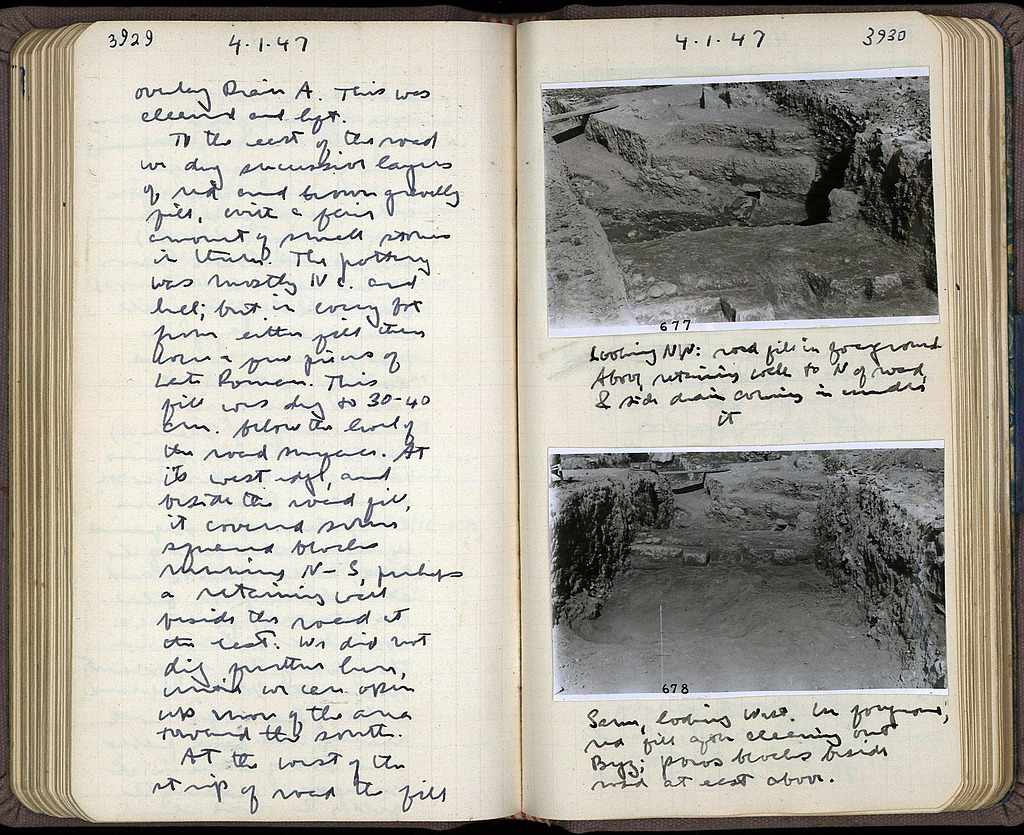 3929
4.1.47
overlay Drain A. This was
cleaned and left.
To the east of the road
we dug successive layers
of red and brown gravelly
fill, with a fair
amount of small stones
in them. The pottery
was mostly IV c. and
hel; but in every lot
from either fill there
were a few pieces of
Late Roman. This
fill was dug to 30-40
cm. below the level of
the road surfaces. At
its west edge, and
beside the road fill,
it covered some
squared blocks
running N-S, perhaps
a retaining wall
beside the road at
the east. We did not
dig further here,
until we can open
up more of the area
toward the south.
At the west of the
strip of road the fill
4.1.47
3930
677
Looking NW: road fill in foreground
Above, retaining wall to N of road,
& side drain coming in under
it
678
Same, looking West. In foreground,
red fill after cleaning out
Byz; poros blocks beside
road at east above.